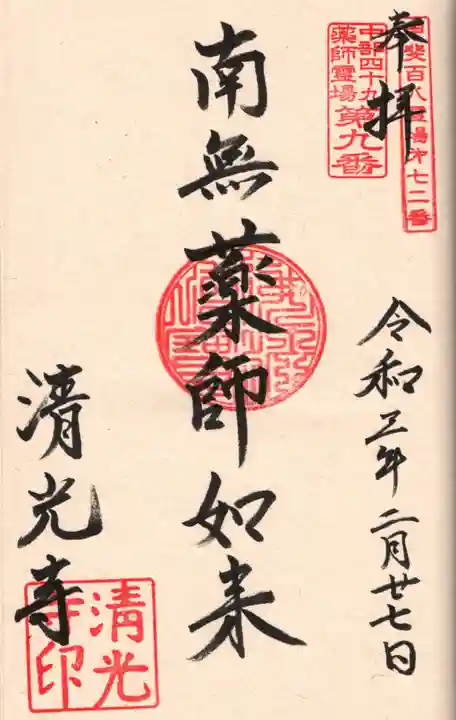 甲斐百八霊場第七二番
奉拝
中部四十九
薬師霊場
第九番
令和五年二月廿七日
南無薬師如来
清光寺
清光
寺印